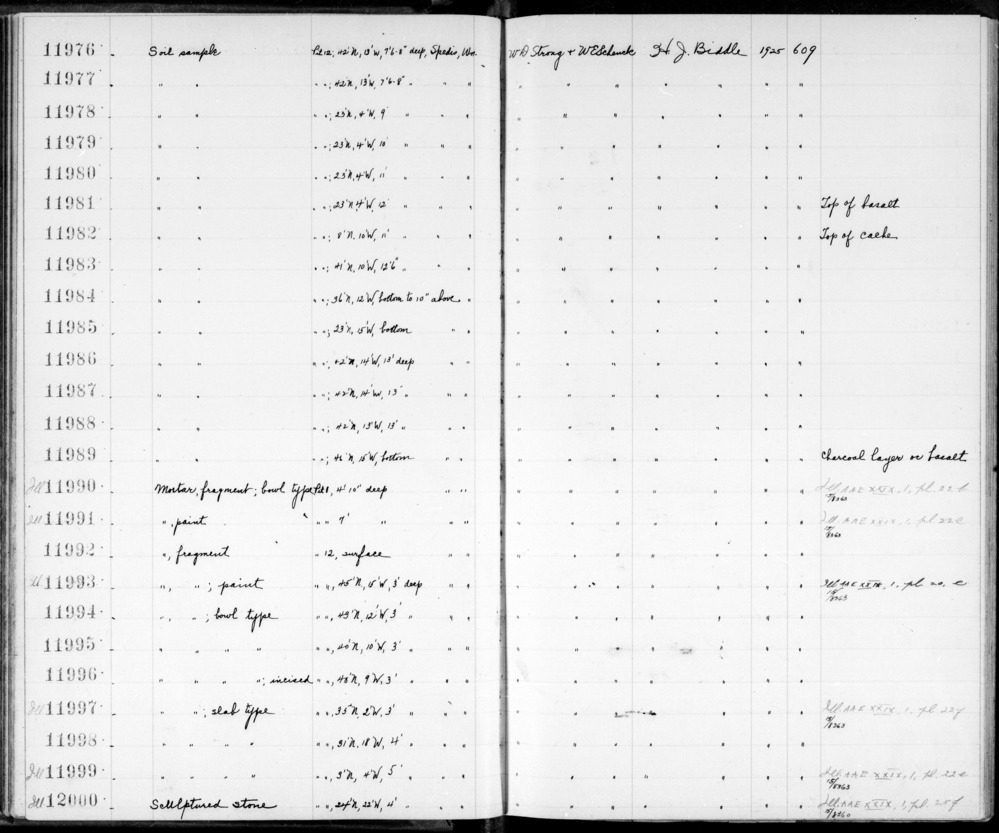 11976 Soil sample Pit 12; 42'N, 13'W, 7'6-8" deep, Spedis, Wn. W D Strong + W E Schenck H. J. Biddle 1925 609
11977 " " " "; 42'N, 13'W, 7'6-8" " " " " " " " " "
11978 " " " "; 23'N, 4'W, 9' " " " " " " " " "
11979 " " " "; 23'N, 4'W, 10' " " " " " " " " "
11980 " " " "; 23'N, 4'W, 11' " " " " " " " " "
11981 " " " "; 23'N, 4'W, 12' " " " " " " " " " Top of basalt
11982 " " " "; 8'N, 10'W, 11' " " " " " " " " " Top of cache
11983 " " " "; 41'N, 10'W, 12'6" " " " " " " " " "
11984 " " " "; 36'N, 12'W, bottom to 10" above " " " " " " " "
11985 " " " "; 23'N, 15'W, bottom " " " " " " " " "
11986 " " " "; 42'N, 14'W, 13' deep " " " " " " " " "
11987 " " " "; 42'N, 14'W, 13' " " " " " " " " "
11988 " " " "; 42'N, 13'W, 13' " " " " " " " " "
11989 " " " "; 15'W, bottom " " " " " " " " " Charcoal layer on basalt
Ill 11990 Mortar, fragment; bowl type Pit 1, 4'10" deep " " " " " " " " Ill AAE XXIX, 1, pl. 22
11991 ", paint " " 7' " " " " " " " " " Ill AAE XXIX, 1, pl 22
11992 ", fragment " 12, surface " " " " " " " "
11993 ", "; paint " ", 45'N, 15'W, 3' deep " " " " " " " " Ill AAE XXIX, 1, pl. 20, c
11994 ", "; bowl type " ", 43'N, 12'W, 3' " " " " " " " " "
11995 " " " " " ", 10'W, 3' " " " " " " " " "
11996 " " " "; incised " ", 9'W, 3' " " " " " " " " "
Ill 11997 " "; slab type " ", 35'N, 2'W, 3' " " " " " " " " Ill AAE XXIX, 1, pl. 22
11998 " " " " " ", 31'N, 18'W, 4' " " " " " " " " "
Ill 11999 " " " " " ", 3'N, 4'W, 5' " " " " " " " " Ill AAE XXIX, 1, pl. 22
Ill 12000 Sculptured stone " ", 24'N, 22'W, 4' " " " " " " " " Ill AAE XXIX, 1, pl. 20